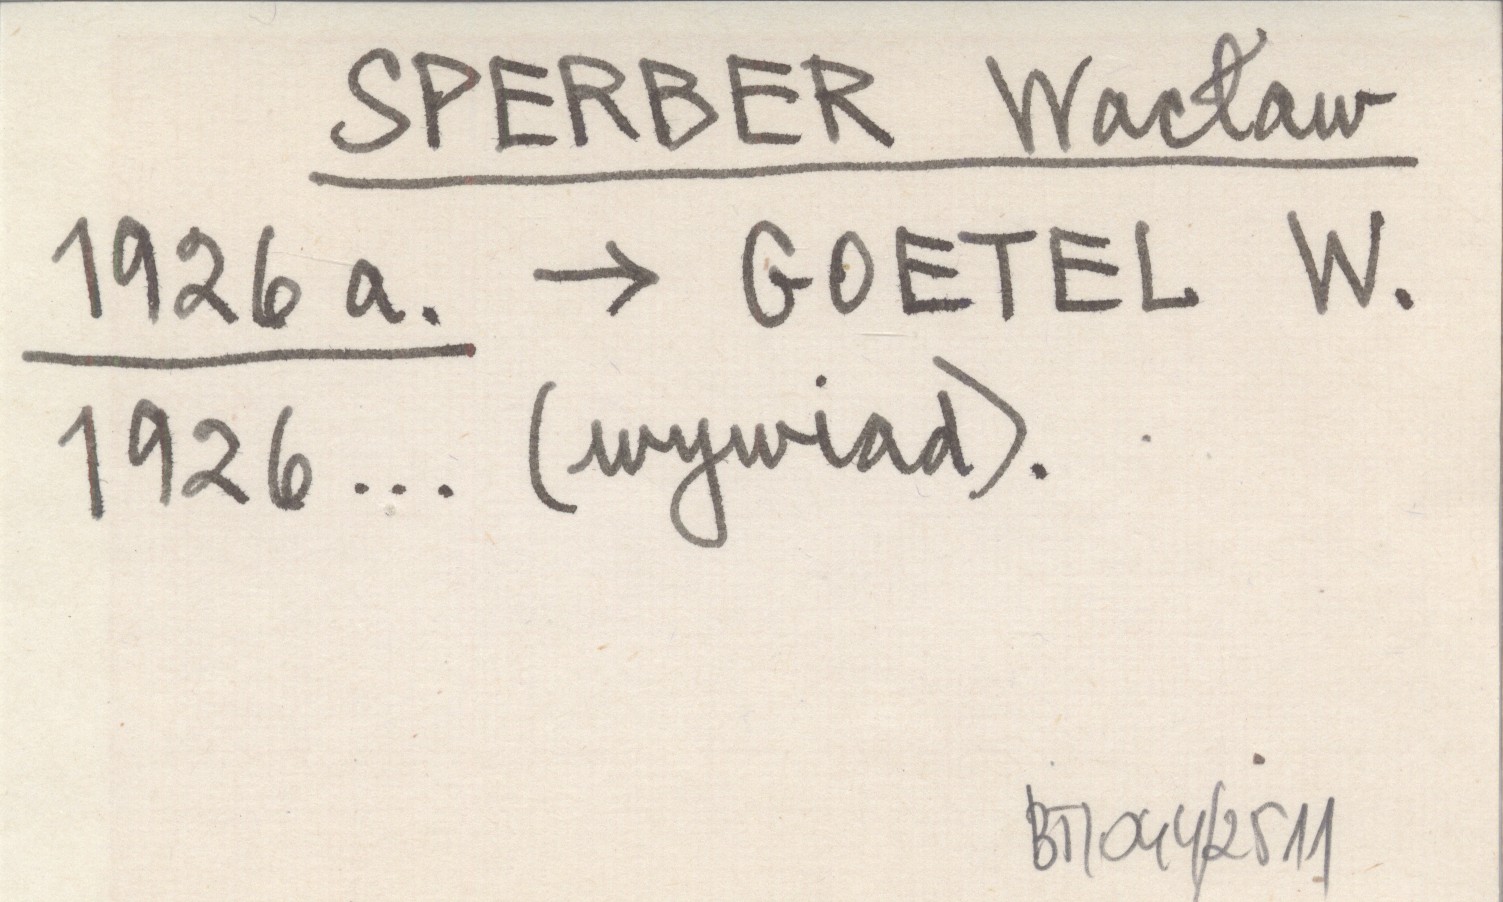 SPERBER Wacław
1926 a. → GOETEL W.
1926 ... (wywiad).
BT/044/2511